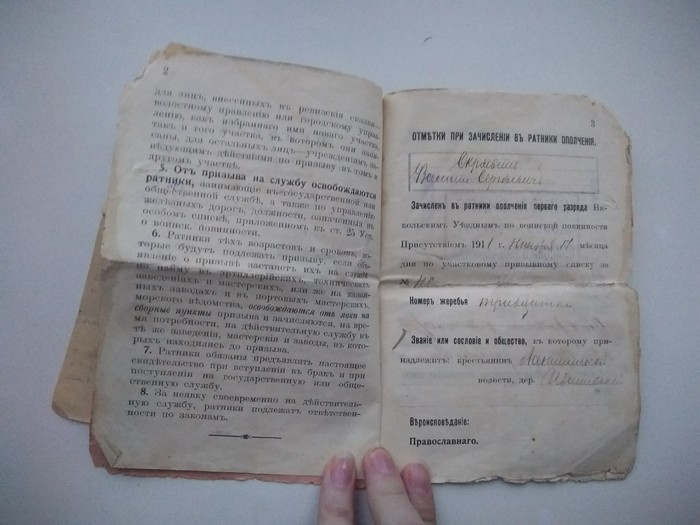 2
для лицъ, внесенныхъ въ ревизскія сказки,
волостному правленію или городскому управ
ленію, какъ избраннаго ими новаго участка,
такъ и того участка, въ которомъ они запи
саны, для остальныхъ лицъ—учрежденіямъ, за-
вѣдующимъ дѣйствіями по призыву въ томъ и
другомъ участкѣ.
5. Отъ призыва на службу освобождаются
ратники, занимающіе въ государственной или
общественной службѣ, а также по управленію
желѣзныхъ дорогъ, должности, означенныя въ
особомъ спискѣ, приложенномъ къ ст. 25 Уст.
о воинск. повинности.
6. Ратники тѣхъ возрастовъ и сроковъ, ко-
торые будутъ подлежать призыву, если объ-
явленіе о призывѣ застанетъ ихъ на службѣ
по найму въ артиллерійскихъ, техническихъ
заведеніяхъ и мастерскихъ, или же на
заводахъ и въ портовыхъ мастерскихъ
морского вѣдомства, освобождаются отъ явки на
сборные пункты призыва и зачисляются, на вре-
мя потребности, на дѣйствительную службу въ
тѣ же заведенія, мастерскія и заводы, въ кото-
рыхъ находились до призыва.
7. Ратники обязаны предъявлять настоящее
свидѣтельство при вступленіи въ бракъ и при
поступленіи на государственную или обще-
ственную службу.
8. За неявку своевременно на дѣйствитель-
ную службу, ратники подлежатъ отвѣтствен-
ности по законамъ.
3
ОТМѢТКИ ПРИ ЗАЧИСЛЕНІИ ВЪ РАТНИКИ ОПОЛЧЕНІЯ.
Василій Сергѣевичъ
Зачисленъ въ ратники ополченія перваго разряда Ни-
кольскимъ Уѣзднымъ по воинской повинности
Присутствіемъ 1911 г. мѣсяца
дня по участковому призывному списку за
№
Номеръ жеребья тридцать
Званіе или сословіе и общество, къ которому при-
надлежитъ: крестьянинъ
волости, дер.
Вѣроисповѣданіе:
Православнаго.